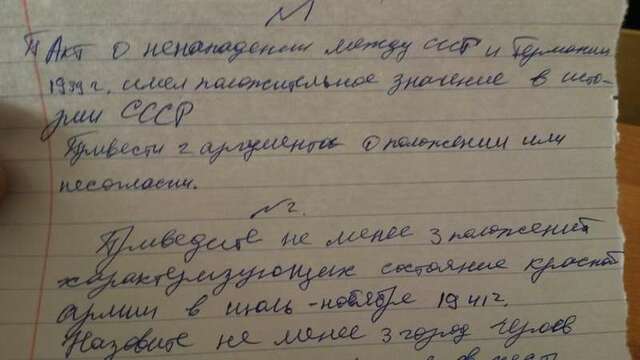 №1
Пакт о ненападении между СССР и Германии
1939г. имел положительное значение в исто-
рии СССР
Привести 2 аргумента о положении или
несогласии.
№2.
Приведите не менее 3 положений
характеризующих состояние красной
армии в июль-ноябре 1941г.
Назовите не менее 3 город героев
в